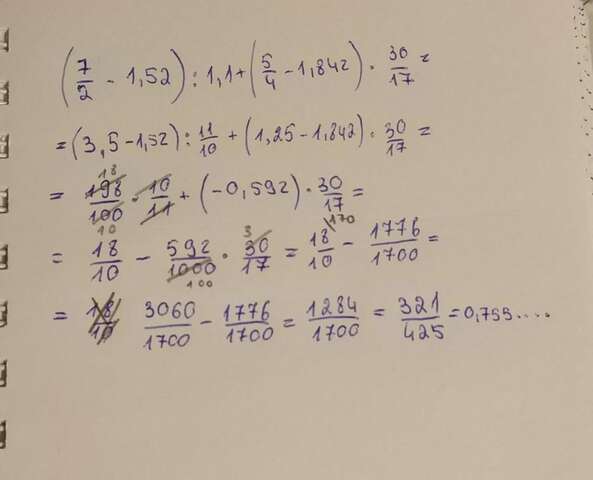 (7/2 - 1,52) : 1,1 + (5/4 - 1,842) · 30/17 =
= (3,5 - 1,52) : 11/10 + (1,25 - 1,842) · 30/17 =
= 198/100 18 10 · 10/11 + (-0,592) · 30/17 =
= 18/10 - 592/1000 100 · 30/17 3 = 18/10 \170 - 1776/1700 =
= 18/10 3060/1700 - 1776/1700 = 1284/1700 = 321/425 = 0,755....